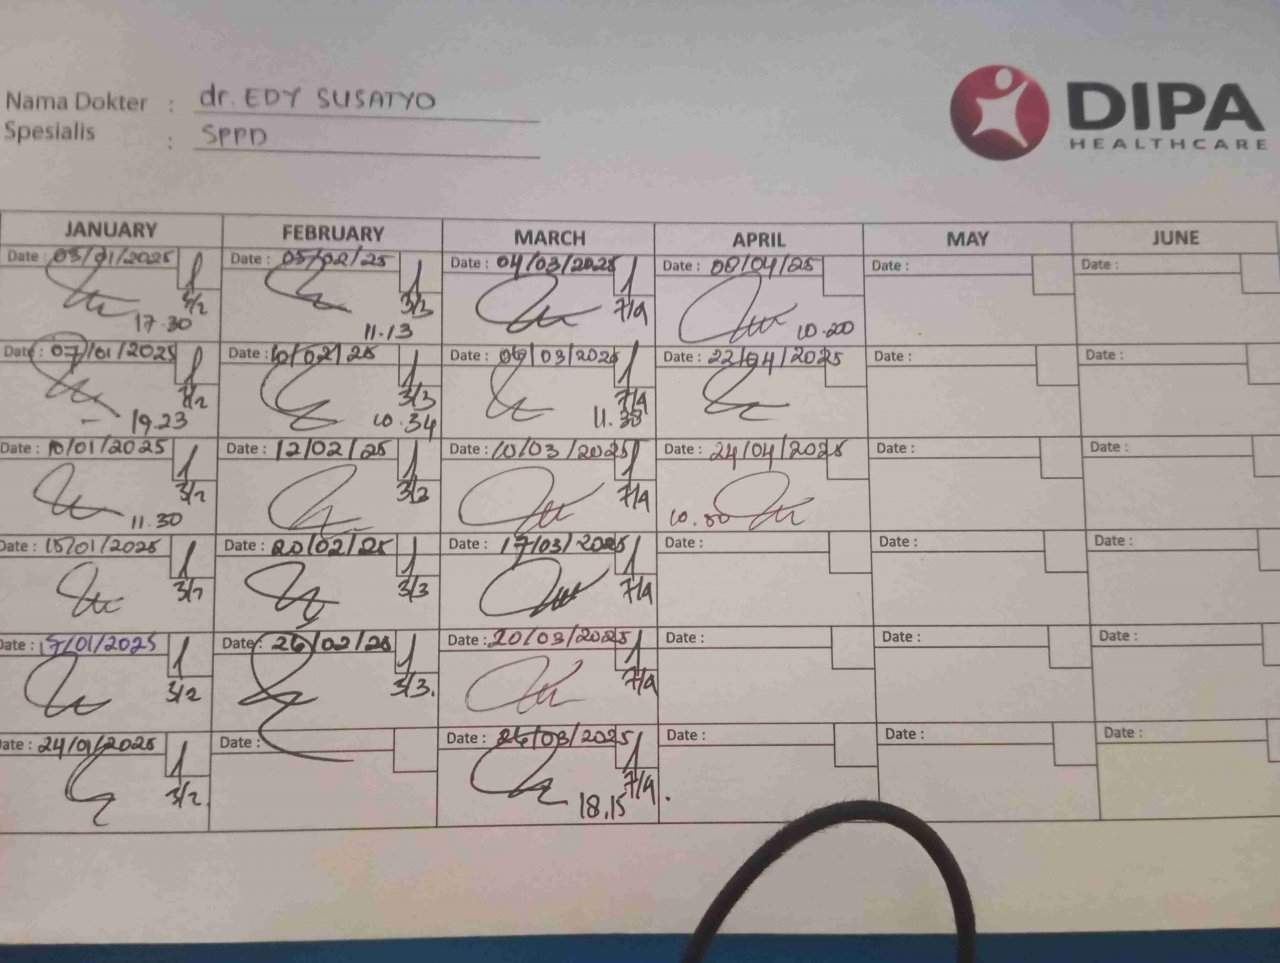 Nama Dokter : dr. EDY SUSATYO
Spesialis : SPPD
DIPA
HEALTHCARE
JANUARY FEBRUARY MARCH APRIL MAY JUNE
Date : 03/01/2025 Date : 05/02/25 Date : 04/03/2025 Date : 08/04/25 Date : Date :
3/2 3/3 7/4
17.30 11.13 10.20
Date : 07/01/2025 Date : 10/02/25 Date : 06/03/2025 Date : 22/04/2025 Date : Date :
3/2 3/3 7/4
19.23 10.34 11.38
Date : 10/01/2025 Date : 12/02/25 Date : 10/03/2025 Date : 24/04/2025 Date : Date :
3/2 3/3 7/4
11.30 10.30
Date : 15/01/2025 Date : 20/02/25 Date : 17/03/2025 Date : Date : Date :
3/2 3/3 7/4
Date : 17/01/2025 Date : 26/02/25 Date : 20/03/2025 Date : Date : Date :
3/2 3/3. 7/4
Date : 24/01/2025 Date : Date : 26/03/2025 Date : Date : Date :
3/2. 7/4.
18.15